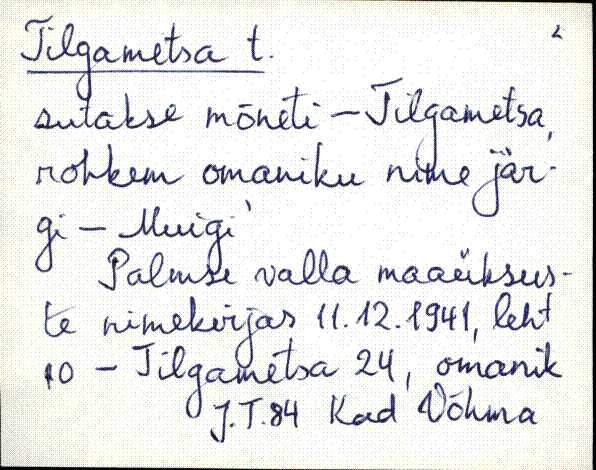 2
Tilgametsa t.
sutakse mõneti – Tilgametsa,
rohkem omaniku nime jär-
gi – Muigi'
Palmse valla maaüksus-
te nimekirjas 11.12.1941, leht
10 – Tilgametsa 24, omanik
J.T.84 Kad Võhma